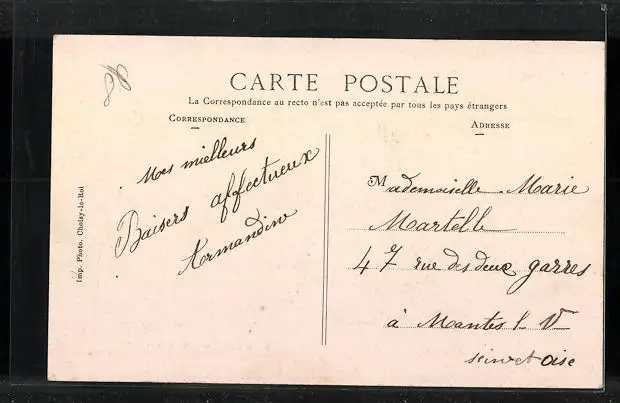 CARTE POSTALE
La Correspondance au recto n'est pas acceptée par tous les pays étrangers
CORRESPONDANCE
ADRESSE
Mes mielleurs
Baisers affectueux
Armandine
Mademoiselle Marie
Martelle
47 rue des deux garres
à Mantes l V
seine et oise
Imp. Photo. Choisy-le-Roi